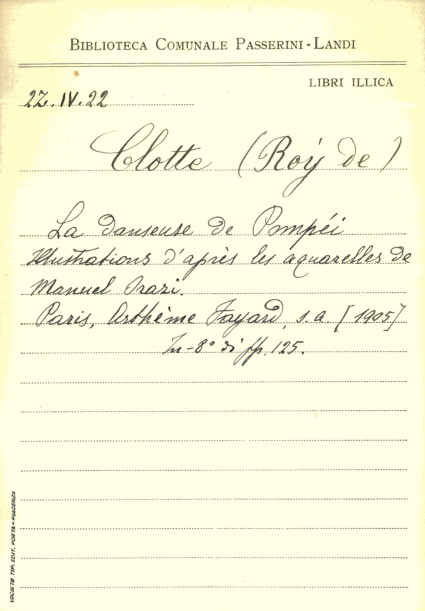 BIBLIOTECA COMUNALE PASSERINI-LANDI
LIBRI ILLICA
22.IV.22
Clotte (Roÿ de)
La danseuse de Pompéi
Illustrations d'après les aquarelles de
Manuel Orazi.
Paris, Arthème Fayard, s.a [1905]
In-8° di pp. 125.
SOCIETÀ TIP. EDIT. PORTA - PIACENZA